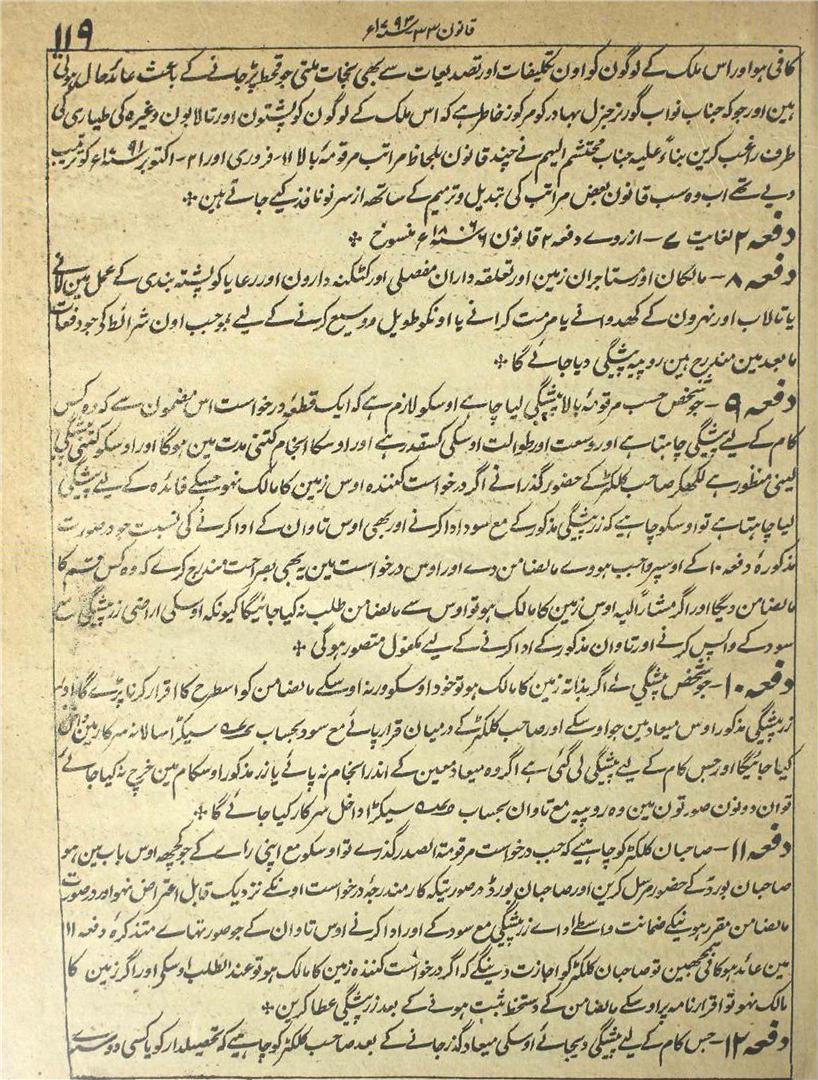 قانون ۳۳ سنہ ۱۷۹۳ء
۱۱۹
کافی ہو اور اس ملک کے لوگون کو اون تکلیفات اور تصدیعات سے بھی نجات ملتی جو قحط پڑ جانے کے باعث عائد حال ہوتی
ہین اور جو کہ جناب نواب گورنر جنرل بہادر کو مرکوز خاطر ہے کہ اس ملک کے لوگون کو پشتون اور تالابون وغیرہ کی طیاری کی
طرف راغب کرین بناءً علیہ جناب محتشم الیہم نے چند قانون بلحاظ مراتب مرقومۂ بالا ۱۱- فروری اور ۲۱- اکتوبر سنہ ۱۷۹۱ء کو ترتیب
دیے تھے اب وہ سب قانون بعض مراتب کی تبدیل و ترمیم کے ساتھ از سر نو نافذ کیے جاتے ہین *
دفعہ ۲ لغایت ۷ - ازروے دفعہ ۲ قانون ۶ سنہ ۱۸۰۶ء منسوخ *
دفعہ ۸ - مالکان اور مستاجران زمین اور تعلقہ داران مفصلی اور کٹکنہ دارون اور رعایا کو پشتہ بندی کے عمل مین لانے
یا تالاب اور نہرون کے کھدوانے یا مرمت کرانے یا اونکو طویل و وسیع کرنے کے لیے بموجب اون شرائط کی جو دفعات
مابعد مین مندرج ہین روپیہ پیشگی دیا جائے گا *
دفعہ ۹ - جو شخص حسب مرقومۂ بالا پیشگی لیا چاہے اوسکو لازم ہے کہ ایک قطعہ درخواست اس مضمون سے کہ وہ کس
کام کے لیے پیشگی چاہتا ہے اور وسعت اور طوالت اوسکی کسقدر ہے اور اوسکا انجام کتنی مدت مین ہوگا اور اوسکو کتنی پیشگی
لینی منظور ہے لکھکر صاحب کلکٹر کے حضور گذرانے اگر درخواست کنندہ اوس زمین کا مالک نہو جسکے فائدہ کے لیے پیشگی
لیا چاہتا ہے تو اوسکو چاہیے کہ زر پیشگی مذکور کے مع سود ادا کرنے اور بھی اوس تاوان کے ادا کرنے کی نسبت جو در صورت
مذکورۂ دفعہ ۱۰ کے اوسپر واجب ہووے مالضامن دے اور اوس درخواست مین یہ بھی بصراحت مندرج کرے کہ وہ کس قسم کا
مالضامن دیگا اور اگر مشارٌ الیہ اوس زمین کا مالک ہو تو اوس سے مالضامن طلب نہ کیا جائیگا کیونکہ اوسکی اراضی زر پیشگی مع
سود کے واپس کرنے اور تاوان مذکور کے ادا کرنے کے لیے مکفول متصور ہوگی *
دفعہ ۱۰ - جو شخص پیشگی لے اگر بذاتہ زمین کا مالک ہو تو خود اوسکو ورنہ اوسکے مالضامن کو اسطرح کا اقرار کرنا پڑے گا کہ
زر پیشگی مذکور اوس میعاد مین جو اوسکے اور صاحب کلکٹر کے درمیان قرار پائے مع سود بحساب سیکڑا سالانہ سرکار مین
کیا جائیگا اور جس کام کے لیے پیشگی لی گئی ہے اگر وہ میعاد معین کے اندر انجام نہ پائے یا زر مذکور اوسکام مین خرچ نہ کیا جائے
تو ان دونون صورتون مین وہ روپیہ مع تاوان بحساب سیکڑا داخل سرکار کیا جائے گا *
دفعہ ۱۱ - صاحبان کلکٹر کو چاہیے کہ جب درخواست مرقومۃ الصدر گذرے تو اوسکو مع اپنی راے کے جو کچھہ اوس باب مین ہو
صاحبان بورڈ کے حضور مرسل کرین اور صاحبان بورڈ در صورتیکہ کار مندرجۂ درخواست اونکے نزدیک قابل اعتراض نہو اور در صورت
مالضامن مقرر ہونیکے ضمانت واسطے اداے زر پیشگی مع سود کے اور ادا کرنے اوس تاوان کے جو صورتہاے متذکرۂ دفعہ ۱۱
مین عائد ہو کافی سمجھین تو صاحبان کلکٹر کو اجازت دینگے کہ اگر درخواست کنندہ زمین کا مالک ہو تو عند الطلب اوسکو اور اگر زمین کا
مالک نہو تو اقرارنامہ پر اوسکے مالضامن کے دستخط ثبت ہونے کے بعد زر پیشگی عطا کرین *
دفعہ ۱۲ - جس کام کے لیے پیشگی دیجائے اوسکی میعاد گذر جانے کے بعد صاحب کلکٹر کو چاہیے کہ تحصیلدار کو یا کسی دوسرے